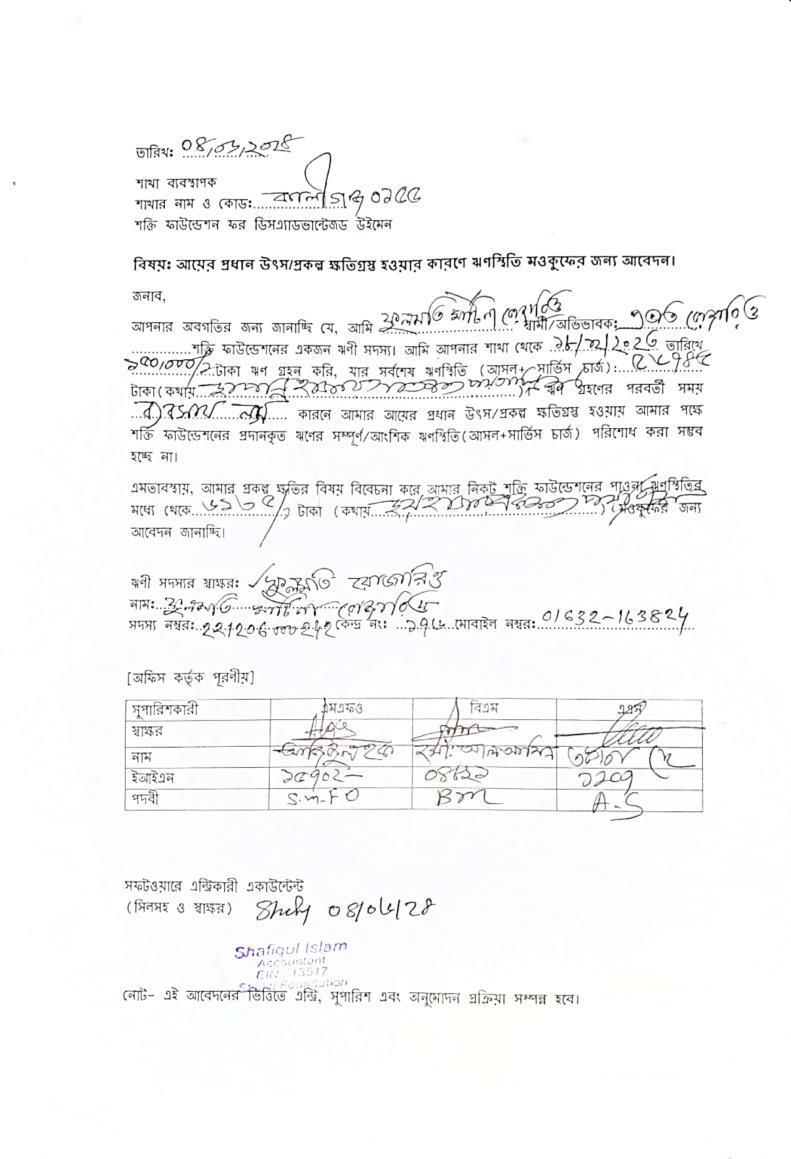 তারিখ: ০৪/০৬/২০২৪
শাখা ব্যবস্থাপক
শাখার নাম ও কোড: কালীগঞ্জ ০১৫৫
শক্তি ফাউন্ডেশন ফর ডিসএ্যাডভান্টেজড উইমেন
বিষয়: আয়ের প্রধান উৎস/প্রকল্প ক্ষতিগ্রস্ত হওয়ার কারণে ঋণস্থিতি মওকুফের জন্য আবেদন।
জনাব,
আপনার অবগতির জন্য জানাচ্ছি যে, আমি ফুলমতি মার্টিনা রোজারিও স্বামী/অভিভাবক: রোজারিও
শক্তি ফাউন্ডেশনের একজন ঋণী সদস্য। আমি আপনার শাখা থেকে তারিখে
টাকা ঋণ গ্রহন করি, যার সর্বশেষ ঋণস্থিতি (আসল+ সার্ভিস চার্জ):
টাকা(কথায় ) ঋণ গ্রহণের পরবর্তী সময়
ব্যবসায় লস কারনে আমার আয়ের প্রধান উৎস/প্রকল্প ক্ষতিগ্রস্ত হওয়ায় আমার পক্ষে
শক্তি ফাউন্ডেশনের প্রদানকৃত ঋণের সম্পূর্ণ/আংশিক ঋণস্থিতি(আসল+সার্ভিস চার্জ) পরিশোধ করা সম্ভব
হচ্ছে না।
এমতাবস্থায়, আমার প্রকল্প ক্ষতির বিষয় বিবেচনা করে আমার নিকট শক্তি ফাউন্ডেশনের পাওনা ঋণস্থিতির
মধ্যে থেকে টাকা (কথায় ) মওকুফের জন্য
আবেদন জানাচ্ছি।
ঋণী সদস্যর স্বাক্ষর: ফুলমতি রোজারিও
নাম: ফুলমতি মার্টিনা রোজারিও
সদস্য নম্বর: কেন্দ্র নং: মোবাইল নম্বর: 01632-163824
[অফিস কর্তৃক পূরণীয়]
সুপারিশকারী এমএফও বিএম এএস
স্বাক্ষর
নাম আজিজুল হক মো: আল আমিন
ইআইএন ১৫৭০২
পদবী S.m.FO Bm A.S
সফটওয়ারে এন্ট্রিকারী একাউন্টেন্ট
(সিলসহ ও স্বাক্ষর) ০৪/০৬/২৪
Shafiqul Islam
Accountant
EIN : 13517
Shakti Foundation
নোট- এই আবেদনের ভিত্তিতে এন্ট্রি, সুপারিশ এবং অনুমোদন প্রক্রিয়া সম্পন্ন হবে।